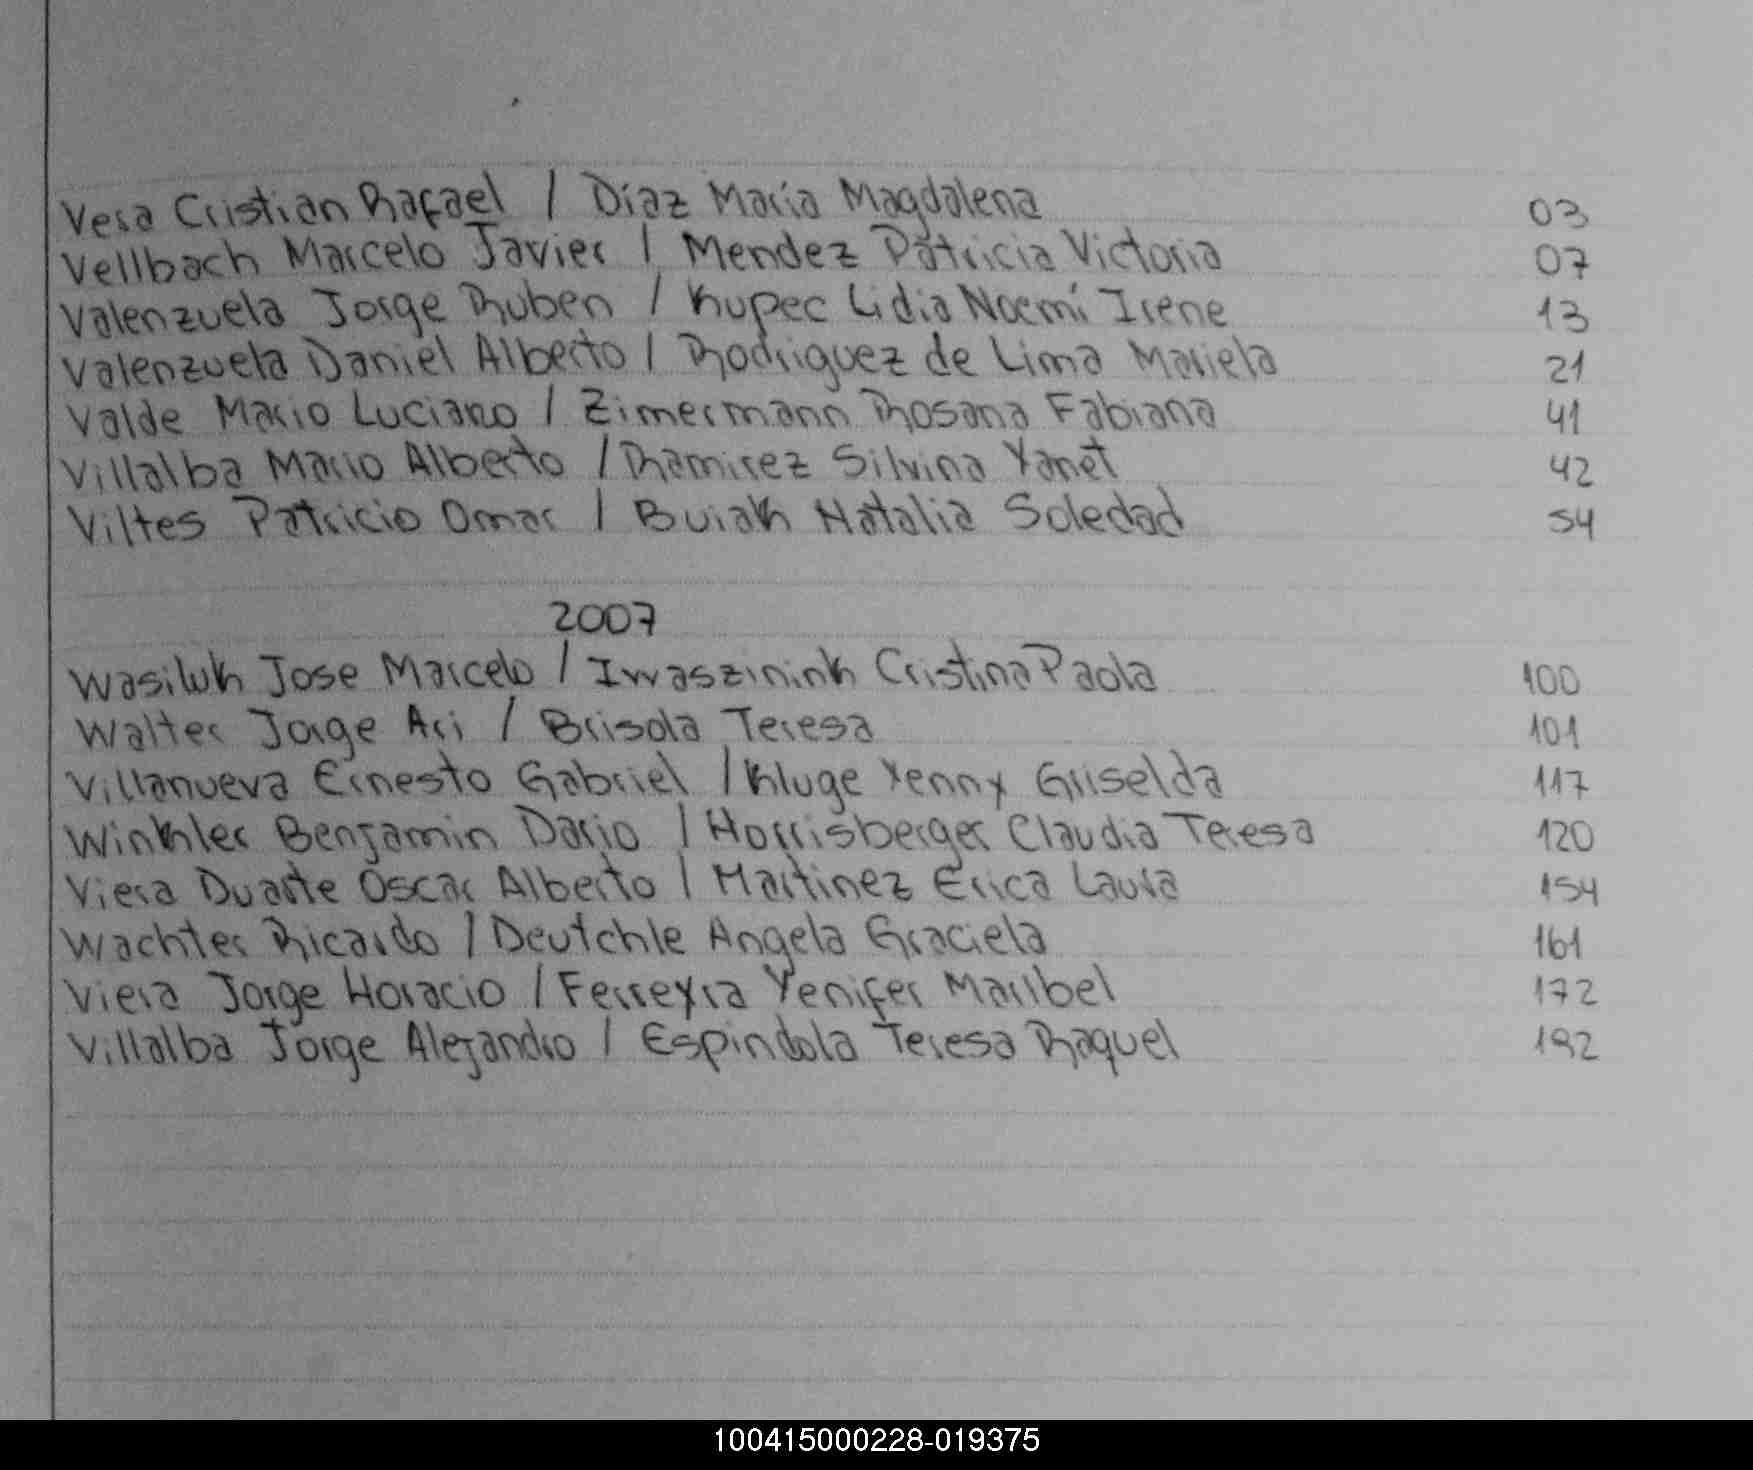 Vera Cristian Rafael / Díaz María Magdalena 03
Vellbach Marcelo Javier / Mendez Patricia Victoria 07
Valenzuela Jorge Ruben / Kupec Lidia Noemí Irene 13
Valenzuela Daniel Alberto / Rodriguez de Lima Mariela 21
Valde Mario Luciano / Zimermann Rosana Fabiana 41
Villalba Mario Alberto / Ramirez Silvina Yanet 42
Viltes Patricio Omar / Buiak Natalia Soledad 54
2007
Wasiluk Jose Marcelo / Iwaszinink Cristina Paola 100
Walter Jorge Ari / Brisola Teresa 101
Villanueva Ernesto Gabriel / Kluge Yenny Griselda 117
Winkler Benjamin Dario / Horrisberger Claudia Teresa 120
Viera Duarte Oscar Alberto / Martinez Erica Laura 154
Wachter Ricardo / Deutchle Angela Graciela 161
Viera Jorge Horacio / Ferreyra Yenifer Maribel 172
Villalba Jorge Alejandro / Espindola Teresa Raquel 192
100415000228-019375